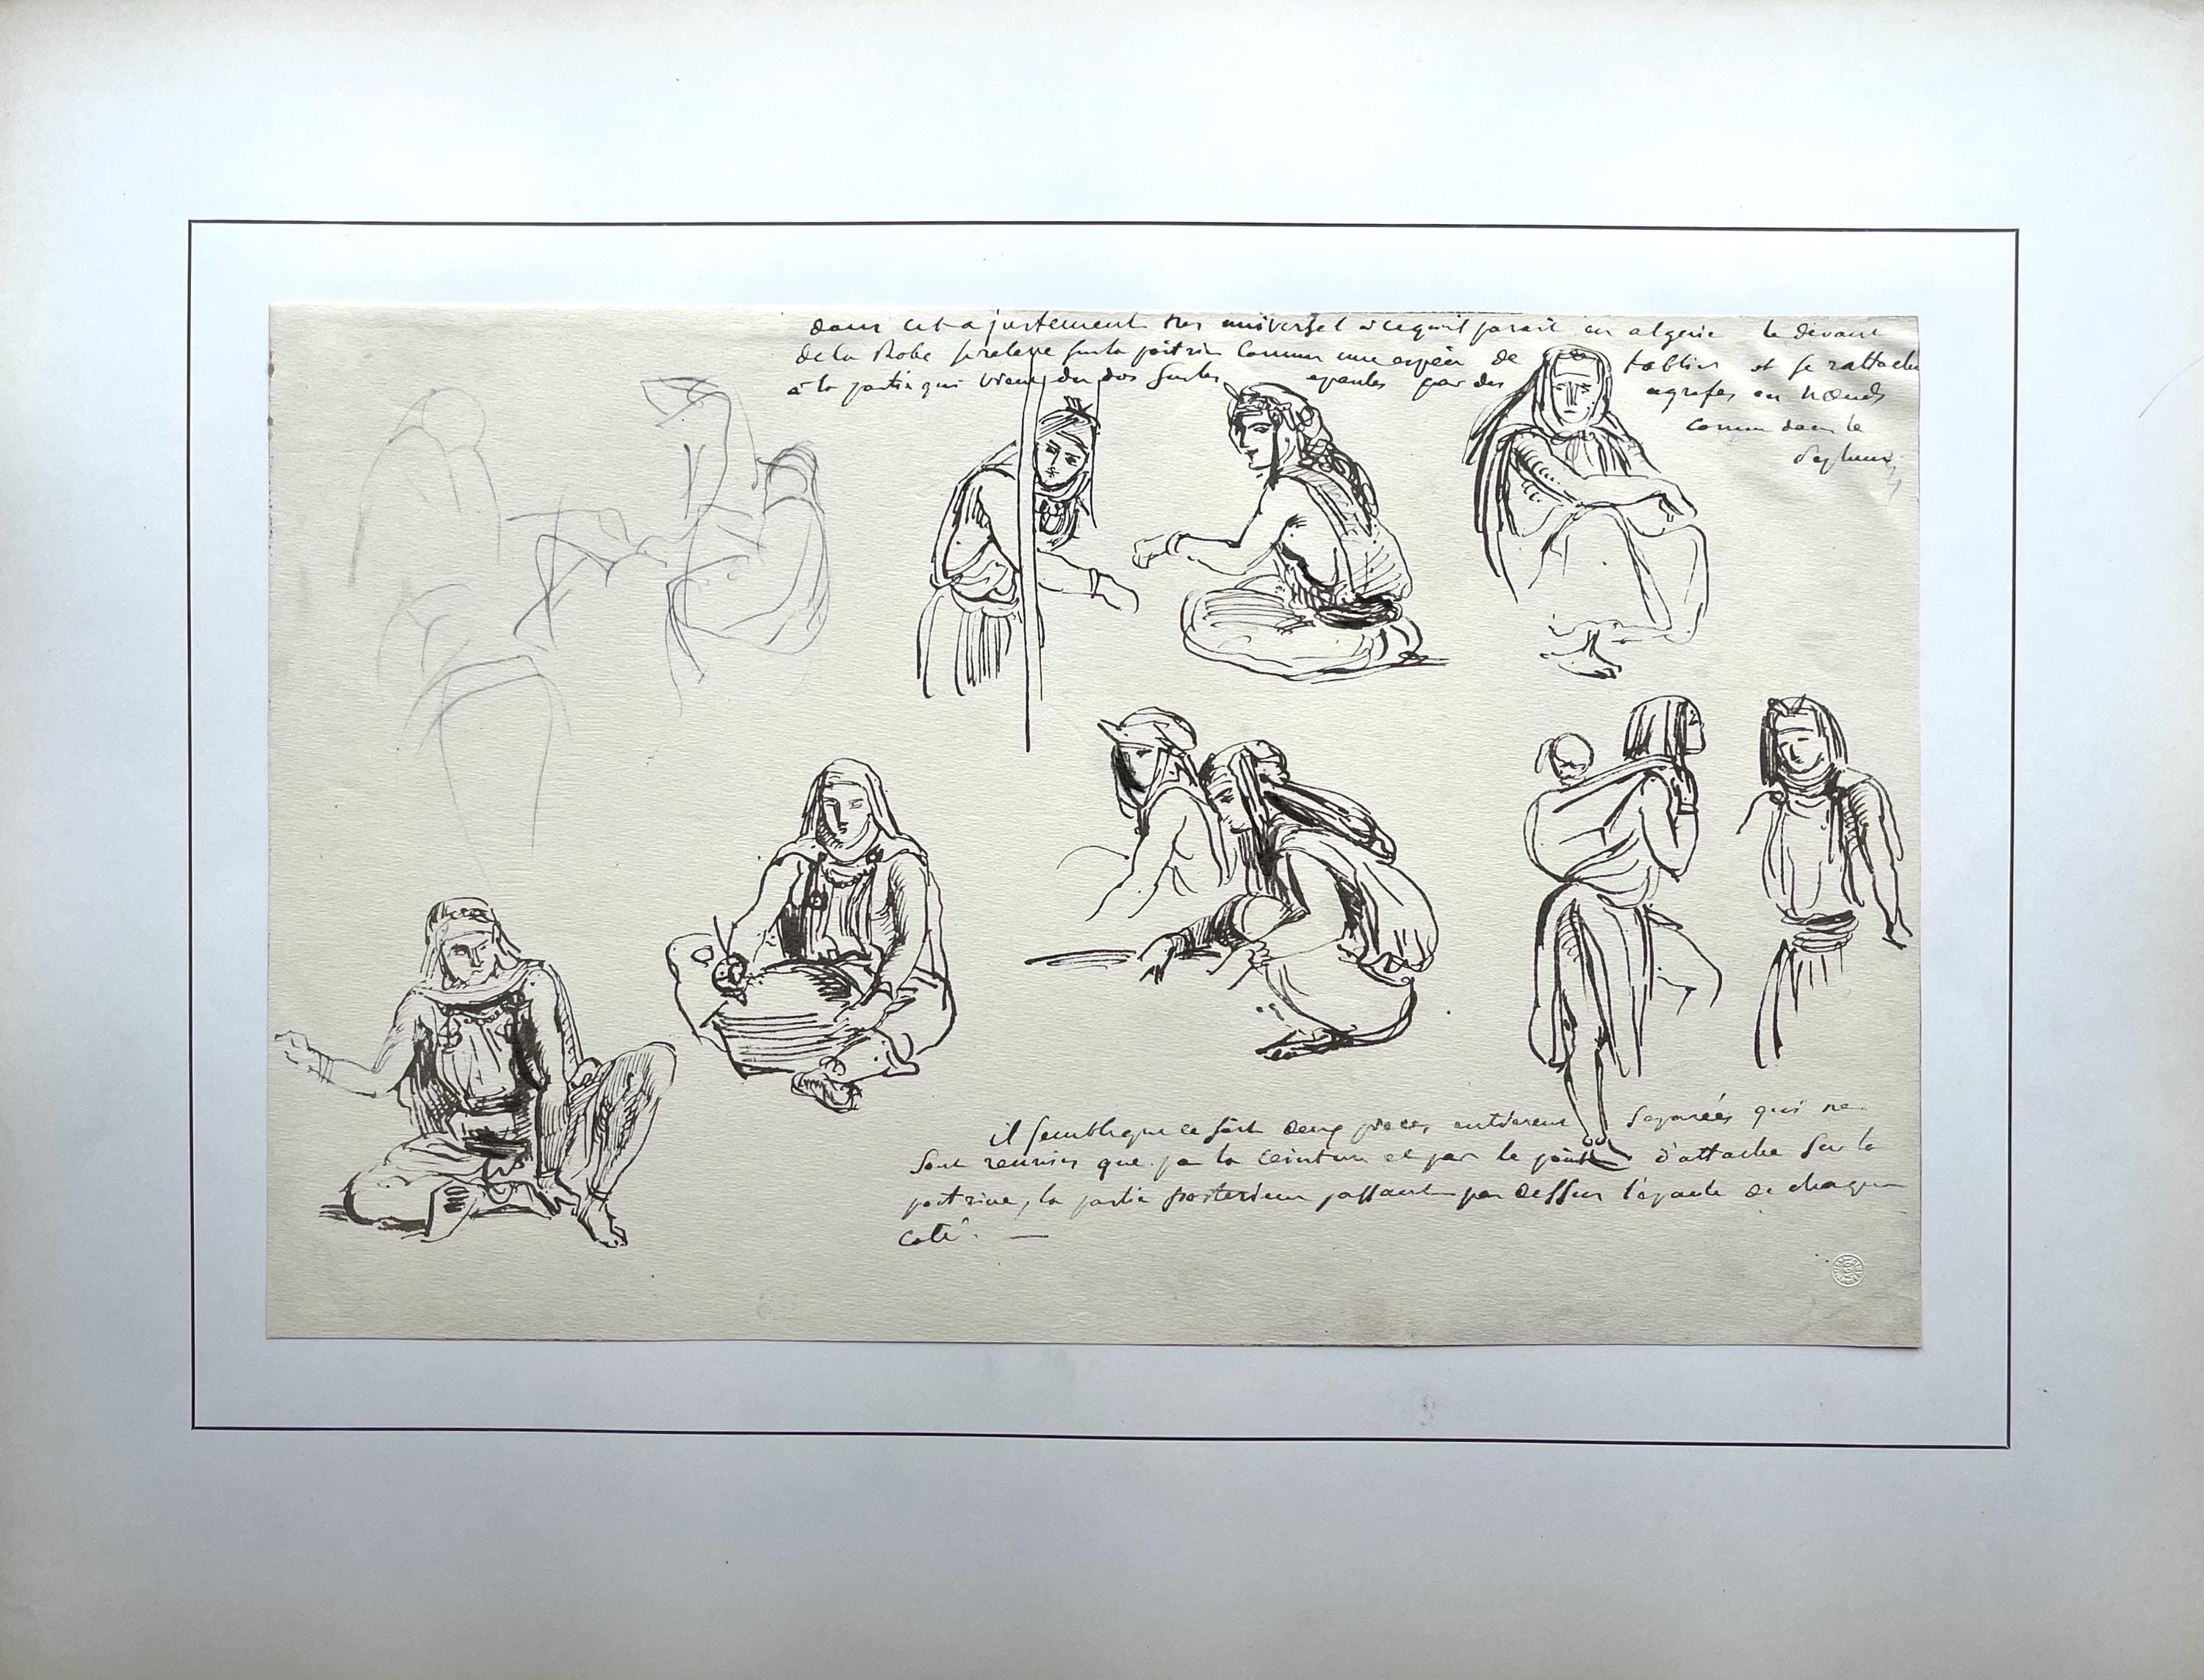 dans cet ajustement tres universel a ce qu'il parait en algerie le devant
de la Robe se releve sur la poitrine comme une espèce de tablier et se rattache
à la partie qui vient du dos sur les epaules par des agrafes ou nœuds
comme dans le
il semble que ce soit deux pieces entierement separées qui ne
sont reunies que par la ceinture et par le point d'attache sur la
poitrine, la partie posterieure passant par dessus l'epaule de chaque
coté. —